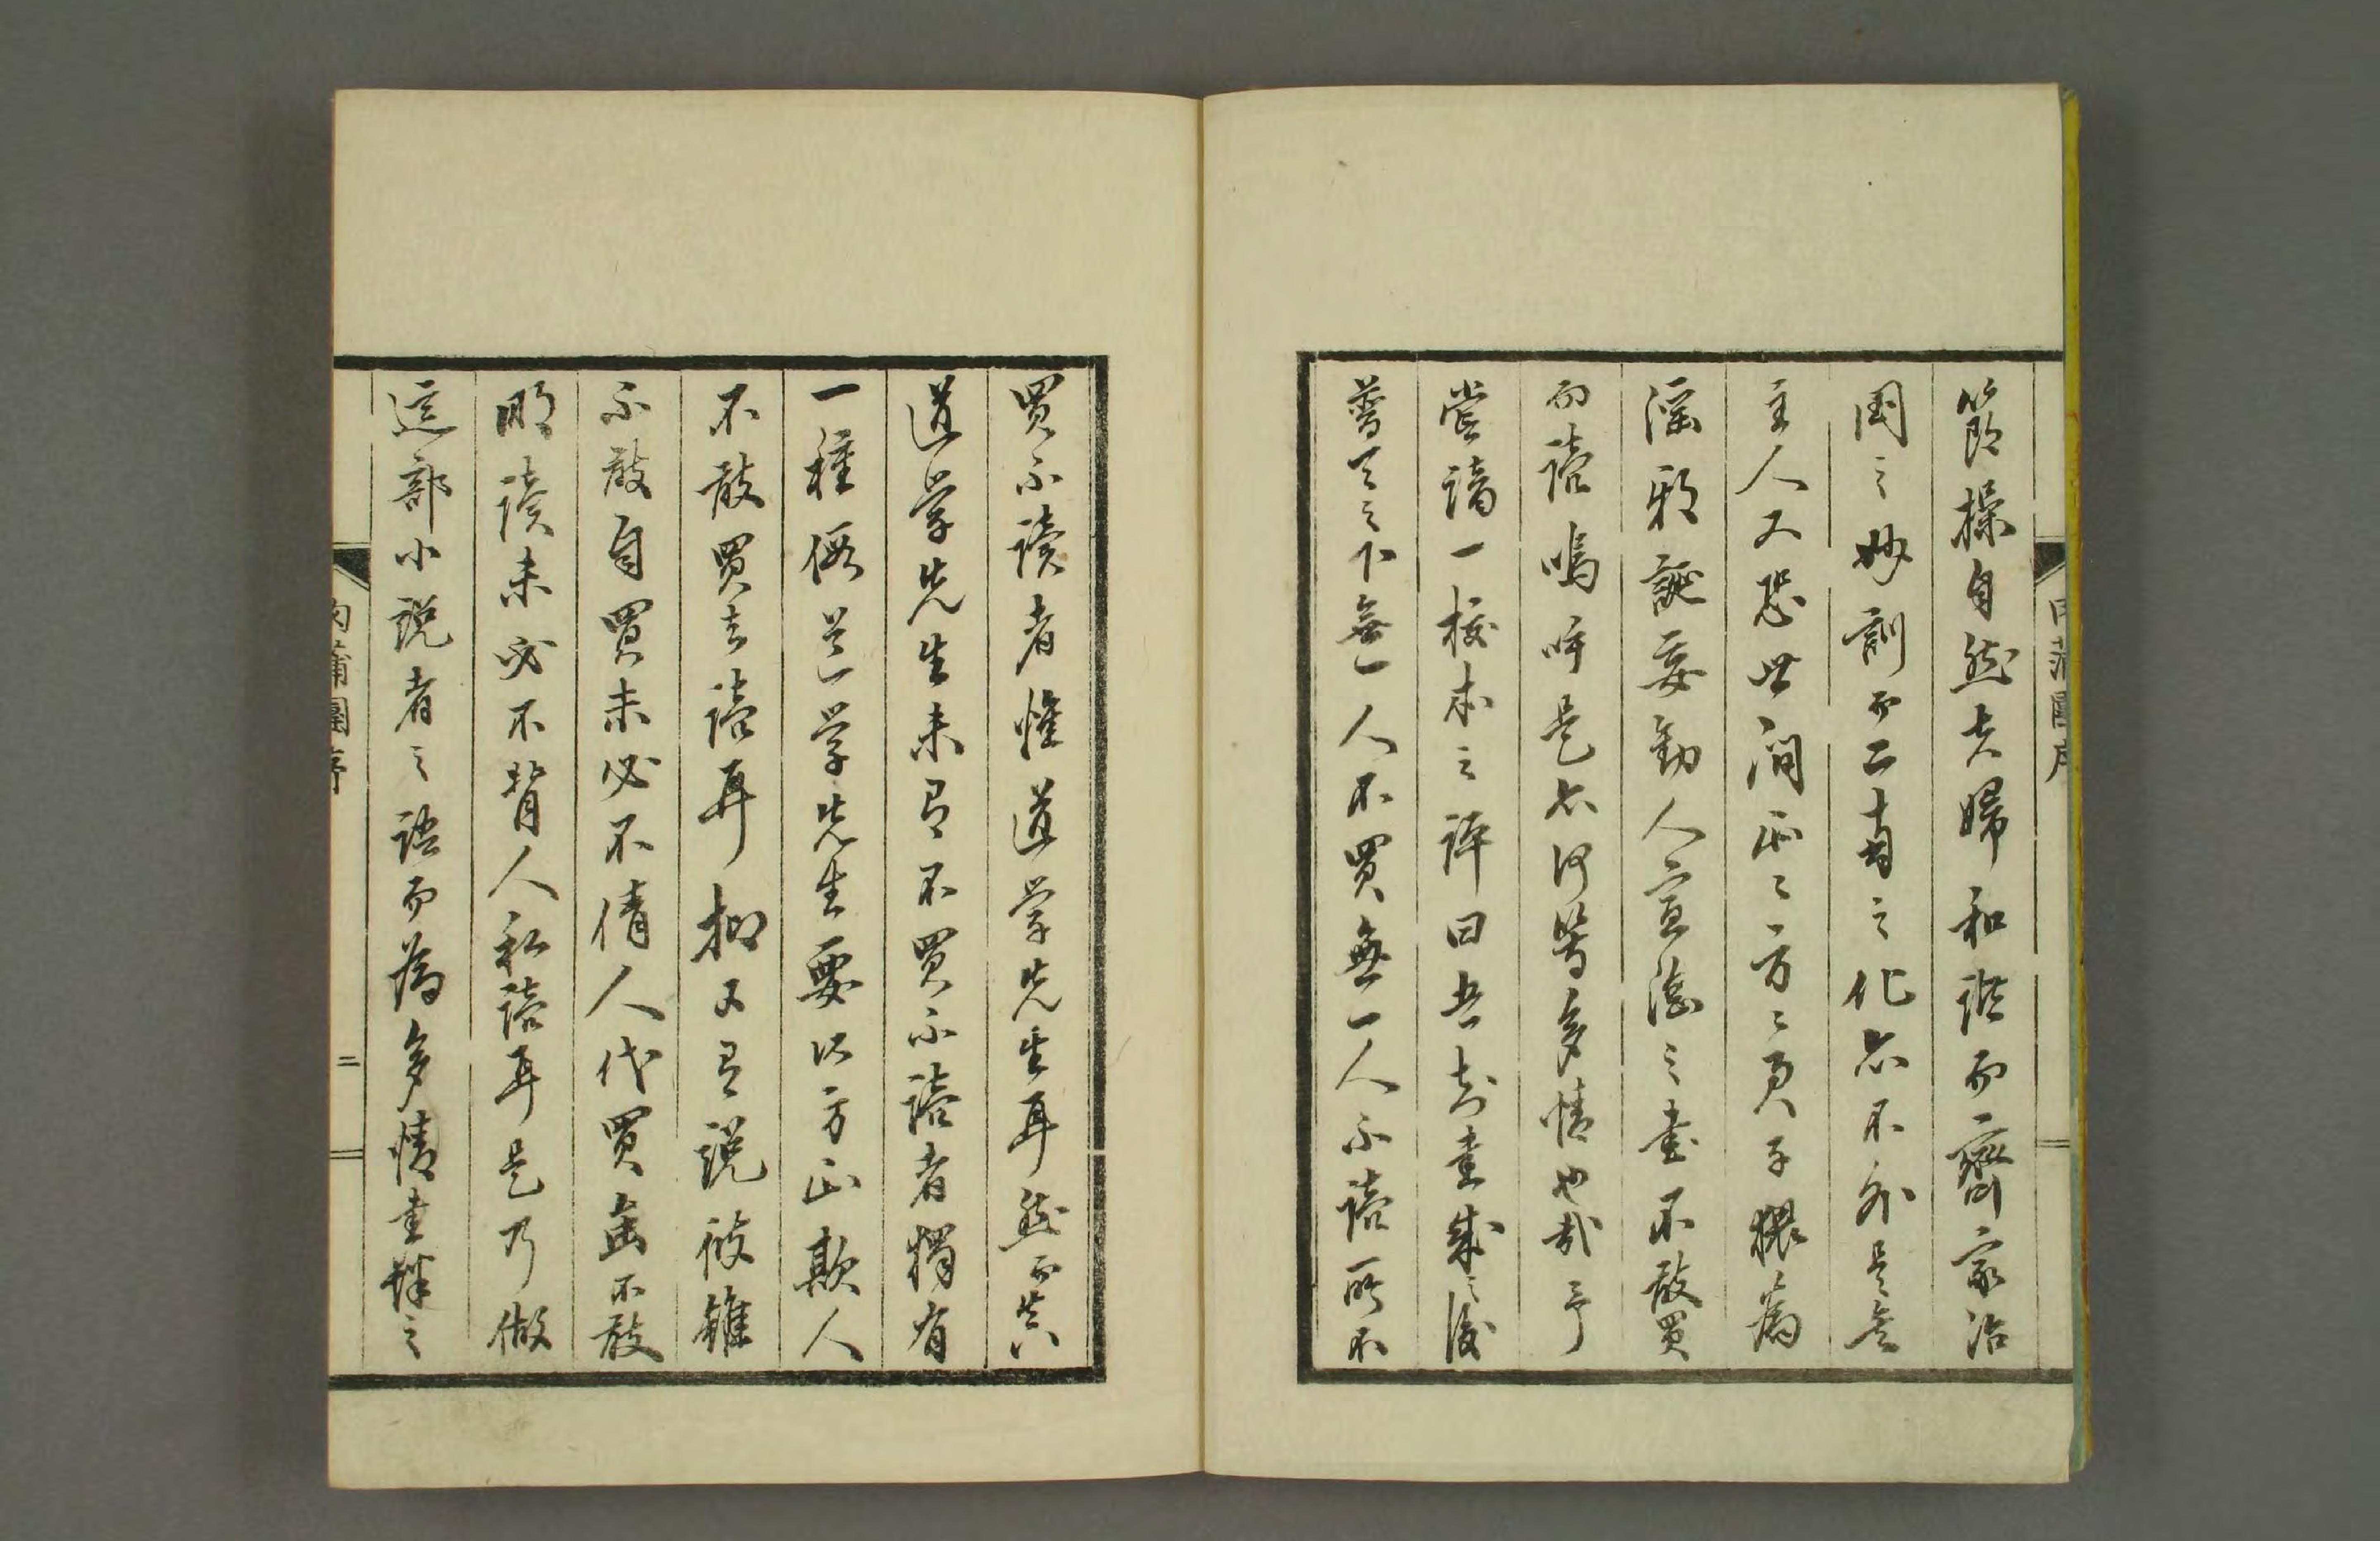 節操自然夫婦和諧而齊家治
國之妙訓而二南之化亦不外是矣
主人又恐世間正〻方〻君子猥為
淫邪誕妄勸人宣淫之書不敢買
而讀嗚呼是亦何等多情也哉予
嘗讀一校本之評曰其書成之後
普天之下無一人不買無一人不讀所不
買不讀者惟道學先生耳然而真
道學先生未有不買不讀者獨有
一種假道學先生要以方正欺人
不敢買去讀耳抑又有說彼雖
不敢自買未必不倩人代買雖不敢
明讀未必不背人私讀耳是乃做
這部小說者之語而為多情書肆之
肉蒲團序
二